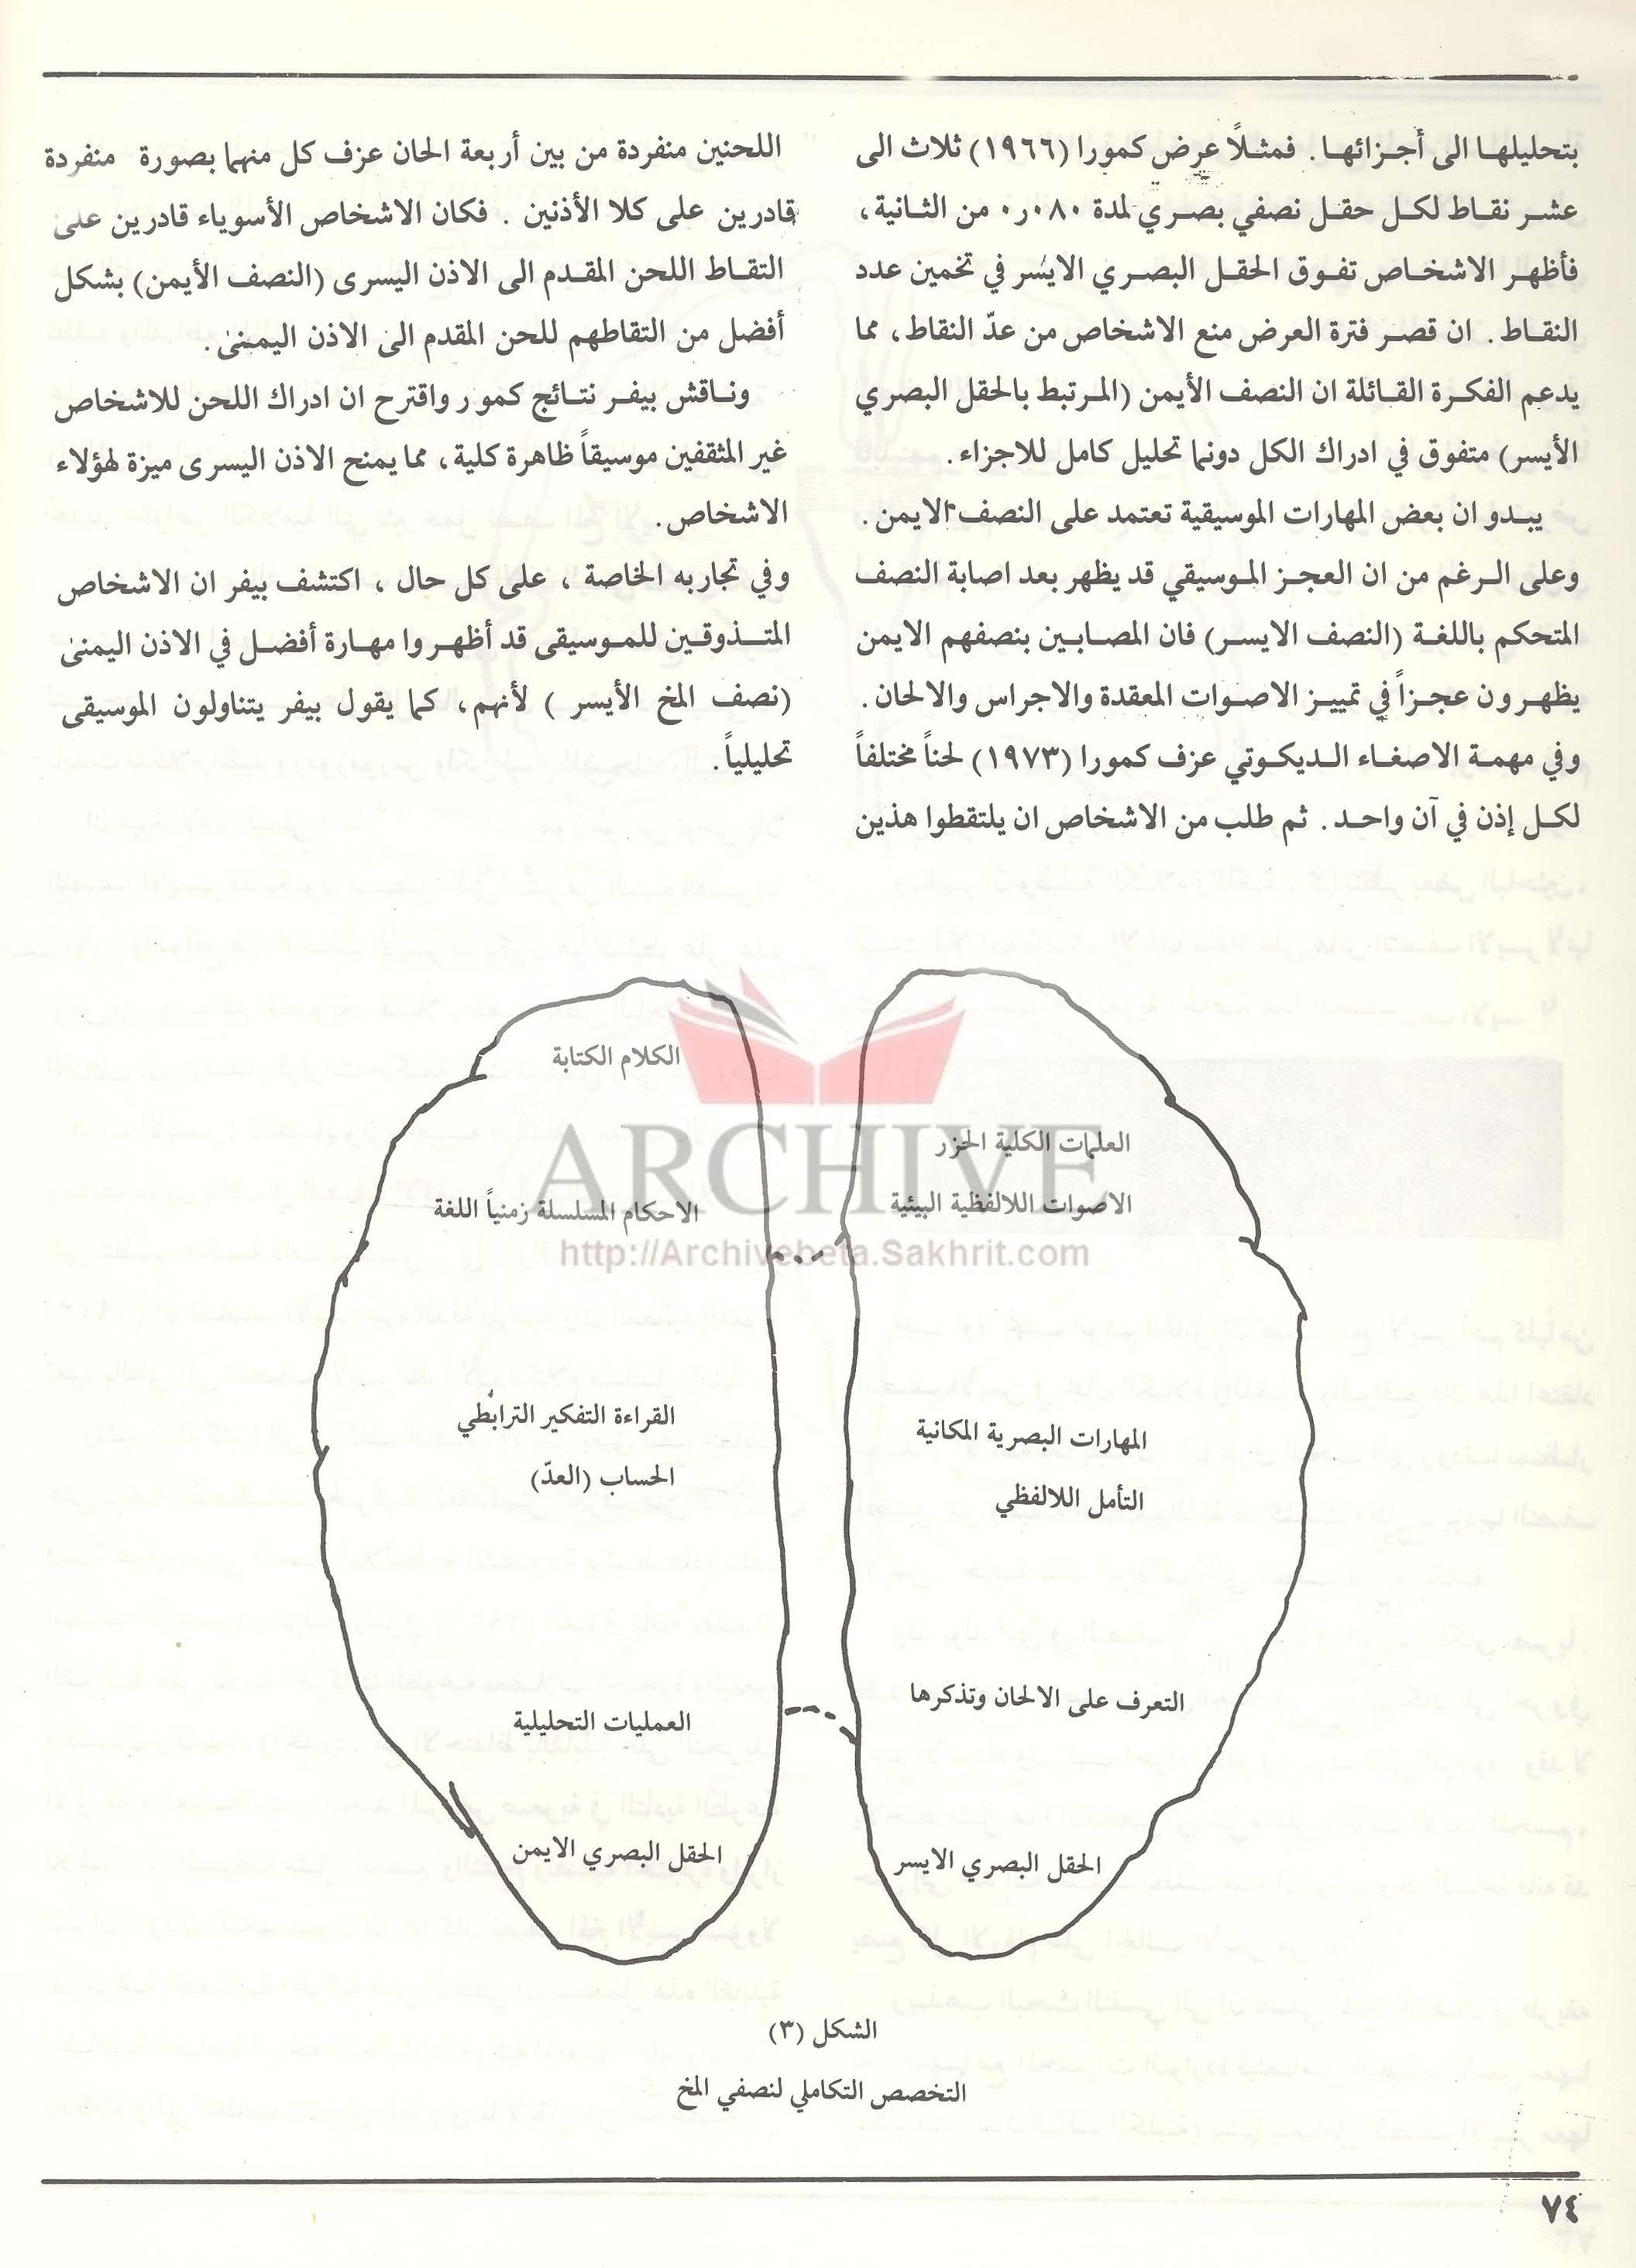 بتحليلها الى أجزائها. فمثلاً عرض كمورا (١٩٦٦) ثلاث الى
عشر نقاط لكل حقل نصفي بصري لمدة ٠٨٠ر٠ من الثانية،
فأظهر الاشخاص تفوق الحقل البصري الايسر في تخمين عدد
النقاط. ان قصر فترة العرض منع الاشخاص من عدّ النقاط، مما
يدعم الفكرة القائلة ان النصف الأيمن (المرتبط بالحقل البصري
الأيسر) متفوق في ادراك الكل دونما تحليل كامل للاجزاء.
يبدو ان بعض المهارات الموسيقية تعتمد على النصف الايمن.
وعلى الرغم من ان العجز الموسيقي قد يظهر بعد اصابة النصف
المتحكم باللغة (النصف الايسر) فان المصابين بنصفهم الايمن
يظهرون عجزاً في تمييز الاصوات المعقدة والاجراس والالحان.
وفي مهمة الاصغاء الديكوتي عزف كمورا (١٩٧٣) لحناً مختلفاً
لكل إذن في آن واحد. ثم طلب من الاشخاص ان يلتقطوا هذين
اللحنين منفردة من بين أربعة الحان عزف كل منهما بصورة منفردة
قادرين على كلا الأذنين. فكان الاشخاص الأسوياء قادرين على
التقاط اللحن المقدم الى الاذن اليسرى (النصف الأيمن) بشكل
أفضل من التقاطهم للحن المقدم الى الاذن اليمنى.
وناقش بيفر نتائج كمور واقترح ان ادراك اللحن للاشخاص
غير المثقفين موسيقاً ظاهرة كلية، مما يمنح الاذن اليسرى ميزة لهؤلاء
الاشخاص.
وفي تجاربه الخاصة، على كل حال، اكتشف بيفر ان الاشخاص
المتذوقين للموسيقى قد أظهروا مهارة أفضل في الاذن اليمنى
(نصف المخ الأيسر) لأنهم، كما يقول بيفر يتناولون الموسيقى
تحليلياً.
العلمات الكلية الحزر
الاصوات اللالفظية البيئية
المهارات البصرية المكانية
التأمل اللالفظي
التعرف على الالحان وتذكرها
الحقل البصري الايسر
الكلام الكتابة
الاحكام المسلسلة زمنياً اللغة
القراءة التفكير الترابطي
الحساب (العدّ)
العمليات التحليلية
الحقل البصري الايمن
ARCHIVE
http://Archivebeta.Sakhrit.com
الشكل (٣)
التخصص التكاملي لنصفي المخ
٧٤